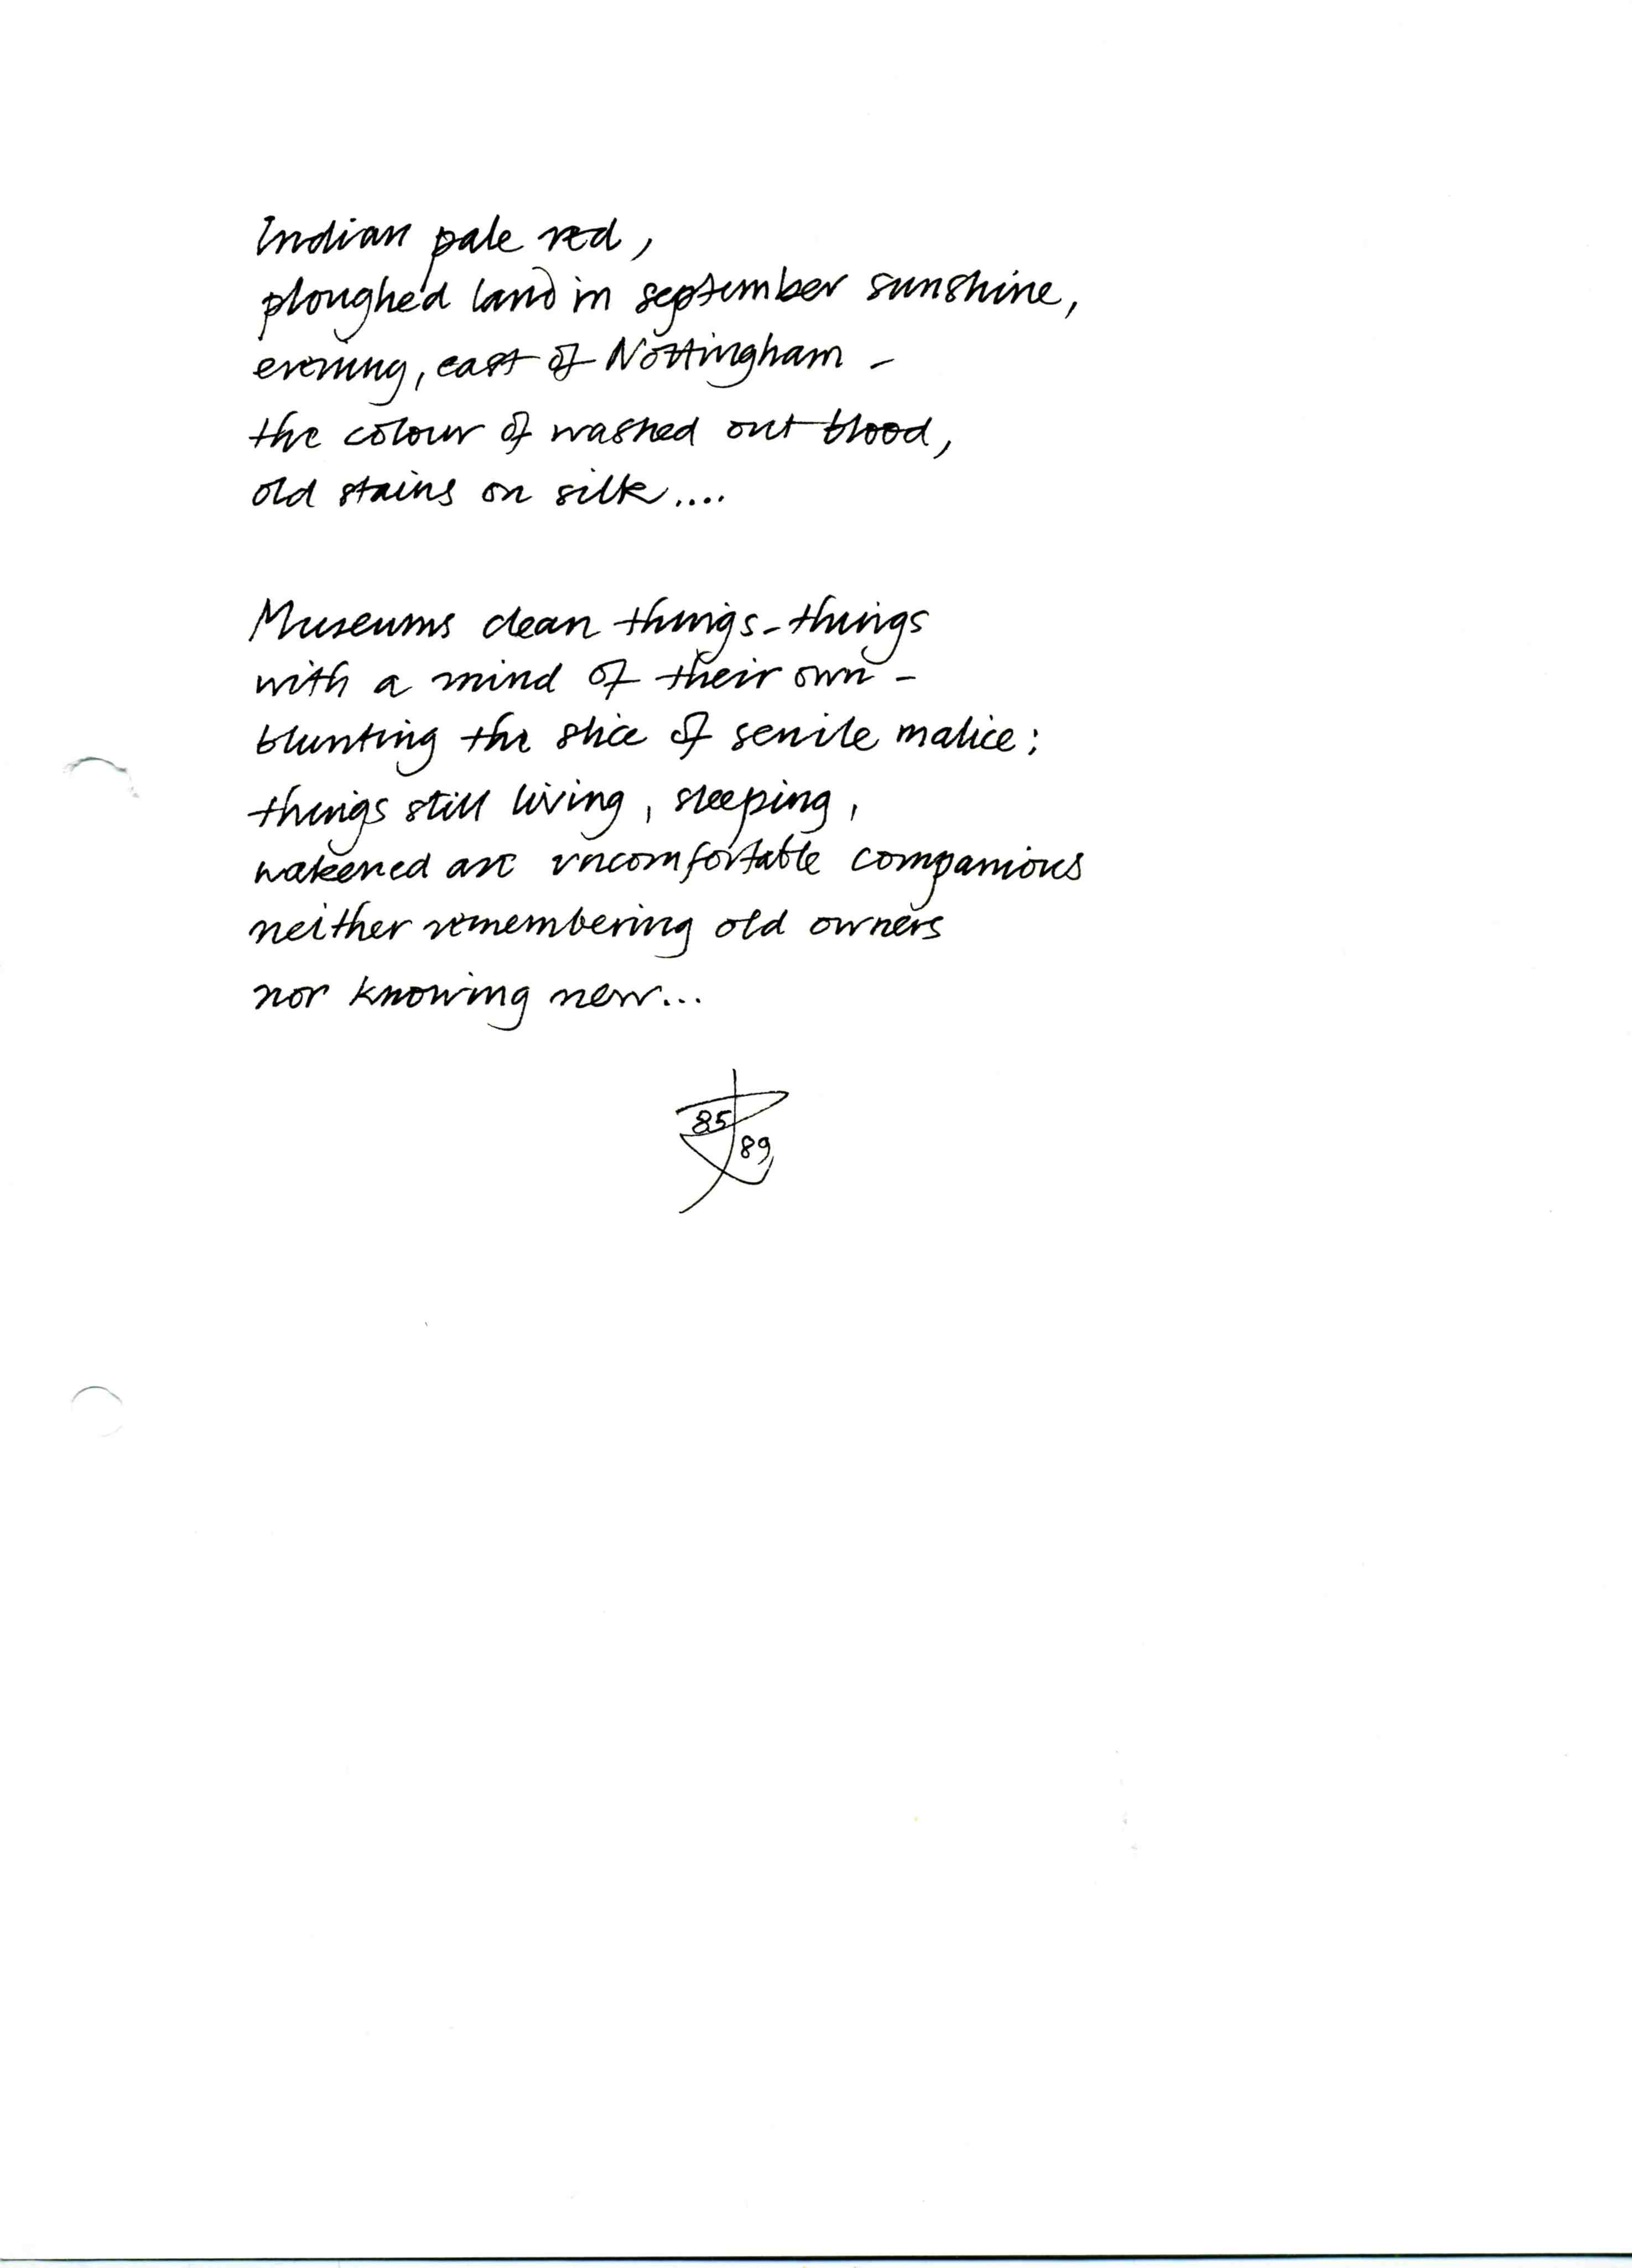 Indian pale red,
ploughed land in september sunshine,
evening, east of Nottingham -
the colour of washed out blood,
old stains on silk....
Museums clean things - things
with a mind of their own -
blunting the slice of senile malice:
things still living, sleeping,
wakened are uncomfortable companions
neither remembering old owners
nor knowing new...
85
89